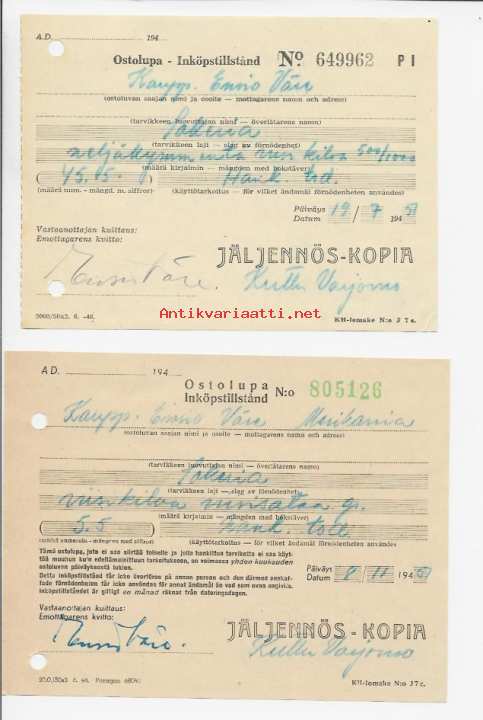 A.D. 194
Ostolupa - Inköpstillstånd No 649962 P I
Kaupp. Ensio Väre
(ostoluvan saajan nimi ja osoite — mottagarens namn och adress)
(tarvikkeen luovuttajan nimi — överlåtarens namn)
Sokeria
(tarvikkeen laji — slag av förnödenhet)
neljäkymmentä viisi kiloa 500/1000
(määrä kirjaimin — mängden med bokstäver)
(määrä num. - mängd. m. siffror) (käyttötarkoitus — för vilket ändamål förnödenheten användes)
Päiväys
Datum 19/7 194
Vastaanottajan kuittaus:
Emottagarens kvitto:
JÄLJENNÖS-KOPIA
Ensio Väre.
Antikvariaatti.net
KH-lomake N:o J 7 c.
A.D. 194
Ostolupa
Inköpstillstånd N:o 805126
Kaupp. Ensio Väre Merikarvia
(ostoluvan saajan nimi ja osoite — mottagarens namn och adress)
(tarvikkeen luovuttajan nimi — överlåtarens namn)
Sokeria
(tarvikkeen laji — slag av förnödenhet)
viisi kiloa viisisataa gr.
(määrä kirjaimin — mängden med bokstäver)
5.5
(määrä numeroin - mängden med siffror) (käyttötarkoitus — för vilket ändamål förnödenheten användes)
Tämä ostolupa, jota ei saa siirtää toiselle ja jolla hankittua tarviketta ei saa käyt-
tää muuhun kuin edellämainittuun tarkoitukseen, on voimassa yhden kuukauden
ostoluvan päiväyksestä lukien.
Detta inköpstillstånd får icke överföras på annan person och den därmed anskaf-
fade förnödenheten får icke användas för annat ändamål än vad som ovan angivits.
Inköpstillståndet är giltigt en månad räknat från dateringsdagen.
Päiväys
Datum 11 194
Vastaanottajan kuittaus:
Emottagarens kvitto:
JÄLJENNÖS-KOPIA
Ensio Väre.
KH-lomake N:o J 7 c.